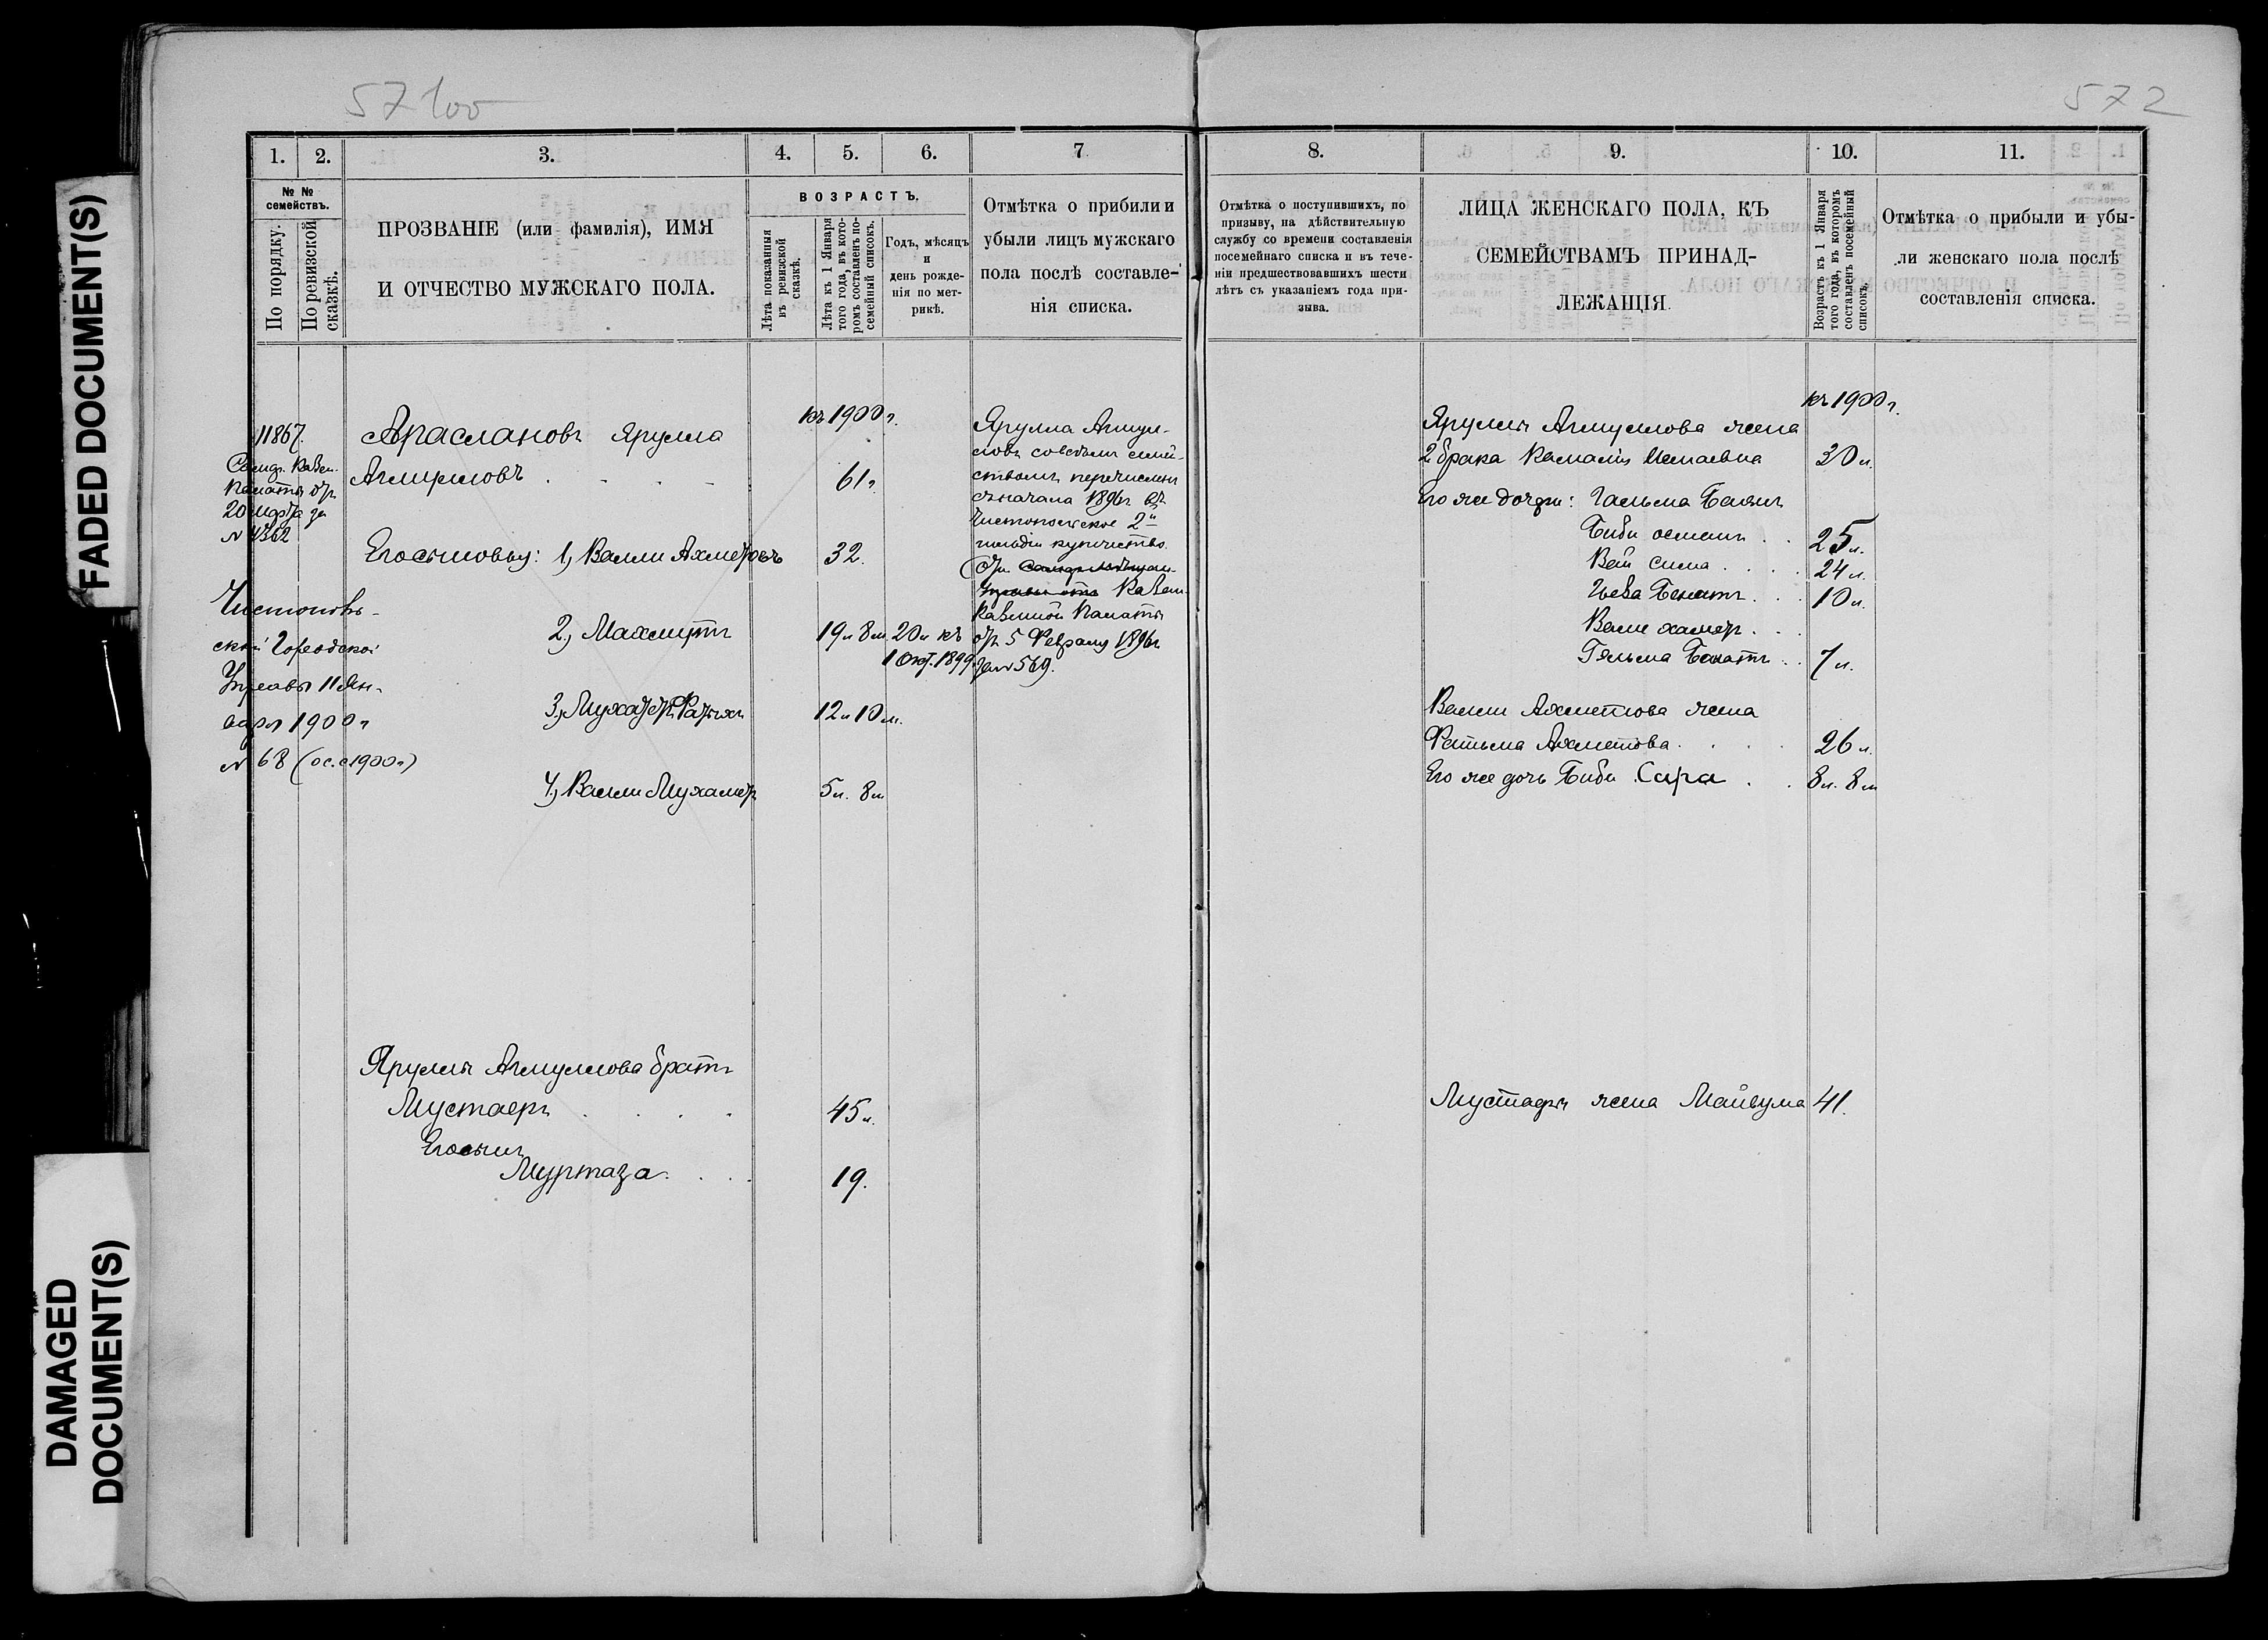 FADED DOCUMENT(S)
DAMAGED DOCUMENT(S)
57 100
572
1. 2. 3. 4. 5. 6. 7
№ № семействъ.
По порядку.
По ревизской сказкѣ.
ПРОЗВАНІЕ (или фамилія), ИМЯ
И ОТЧЕСТВО МУЖСКАГО ПОЛА.
ВОЗРАСТЪ.
Лѣта показанныя въ ревизской сказкѣ.
Лѣта къ 1 Января того года, въ кото-
ромъ составленъ по-
семейный списокъ.
Годъ, мѣсяцъ
и
день рожде-
нія по мет-
рикѣ.
Отмѣтка о прибыли и
убыли лицъ мужскаго
пола послѣ составле-
нія списка.
11867.
Казен.
Палаты отъ
20 за
№ 4362
Чистополь-
ской Городской
Управы 11 Ян-
варя 1900 г
№ 68 (ос. с 1900 г)
къ 1900 г.
Араслановъ Ярулла
61 г.
Его сыновья: 1, Валли Ахметовъ 32.
2, Махмутъ 19 л 8 м. 20 л къ
1 Окт. 1899
3, Фатыхъ 12 л 10 м.
4, Валли Мухаметъ 5 л. 8 м
Ярулла Агмул-
ловъ со всѣмъ семей-
ствомъ перечисленъ
съ начала 1896 г въ
Чистопольское 2й
гильдіи купечество.
Казен-
Казенной Палаты
отъ 5 Февраля 1896 г
за № 569.
Ярулля Агмуллова братъ
Мустаеръ 45 л.
Его сынъ
Муртаза 19.
8. 9. 10. 11.
Отмѣтка о поступившихъ, по
призыву, на дѣйствительную
службу со времени составленія
посемейнаго списка и въ тече-
ніи предшествовавшихъ шести
лѣтъ съ указаніемъ года при-
зыва.
ЛИЦА ЖЕНСКАГО ПОЛА, КЪ
СЕМЕЙСТВАМЪ ПРИНАД-
ЛЕЖАЩІЯ.
Возрастъ къ 1 Января
того года, въ которомъ
составленъ посемейный
списокъ.
Отмѣтка о прибыли и убы-
ли женскаго пола послѣ
составленія списка.
къ 1900 г.
Ярулля Агмуллова жена
2 брака Камаля 30 л.
Его же дочери:
Биби 25 л.
24 л.
10 л.
7 л.
Валли Ахметова жена
Фатыма Ахметова 26 л.
Его же дочь Биби Сара 8 л. 8 м
Мустафы жена 41.